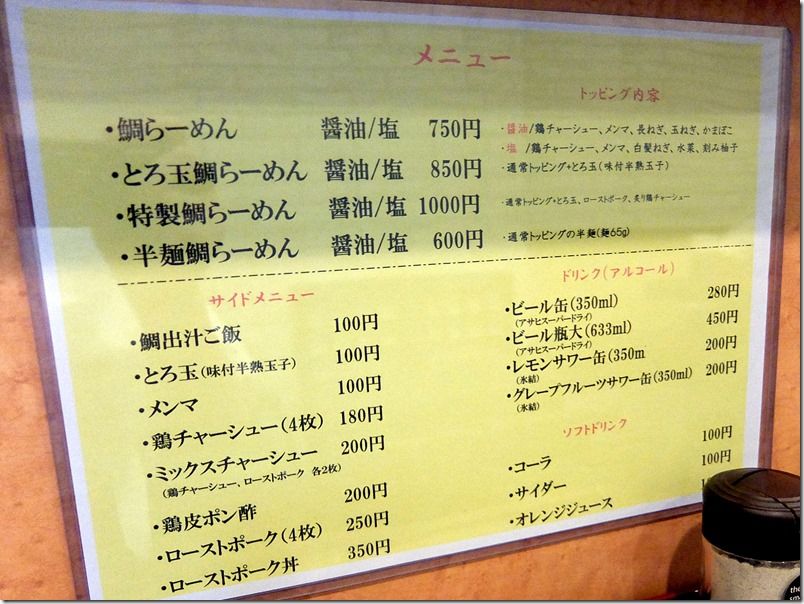 メニュー
トッピング内容
・鯛らーめん 醤油/塩 750円 ・醤油/鶏チャーシュー、メンマ、長ねぎ、玉ねぎ、かまぼこ
・塩 /鶏チャーシュー、メンマ、白髪ねぎ、水菜、刻み柚子
・とろ玉鯛らーめん 醤油/塩 850円 ・通常トッピング+とろ玉(味付半熟玉子)
・特製鯛らーめん 醤油/塩 1000円 ・通常トッピング+とろ玉、ローストポーク、炙り鶏チャーシュー
・半麺鯛らーめん 醤油/塩 600円 ・通常トッピングの半麺(麺65g)
サイドメニュー
・鯛出汁ご飯 100円
・とろ玉(味付半熟玉子) 100円
・メンマ 100円
・鶏チャーシュー(4枚) 180円
・ミックスチャーシュー 200円
(鶏チャーシュー、ローストポーク 各2枚)
・鶏皮ポン酢 200円
・ローストポーク(4枚) 250円
・ローストポーク丼 350円
ドリンク(アルコール)
・ビール缶(350ml) 280円
(アサヒスーパードライ)
・ビール瓶大(633ml) 450円
(アサヒスーパードライ)
・レモンサワー缶(350m 200円
(氷結)
・グレープフルーツサワー缶(350ml) 200円
(氷結)
ソフトドリンク
・コーラ 100円
・サイダー 100円
・オレンジジュース
the